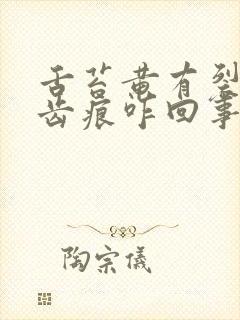 舌苔黄有裂
齿痕咋回事
陶宗儀